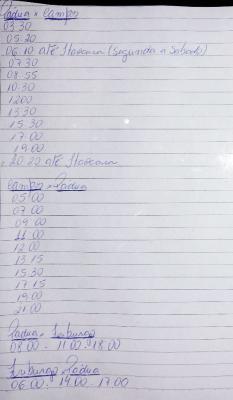 Pádua x Campos
03:30
05:20
06:10 até Itaocara (segunda a Sabado)
07:30
08:55
10:30
12:00
13:30
15:30
17:00
19:00
20:20 até Itaocara
Campos x Pádua
05:00
07:00
09:00
11:00
12:00
13:15
15:30
17:15
19:00
21:00
Padua x Friburgo
08:00 - 11:00 - 18:00
Friburgo x Padua
06:00 - 14:00 - 17:00